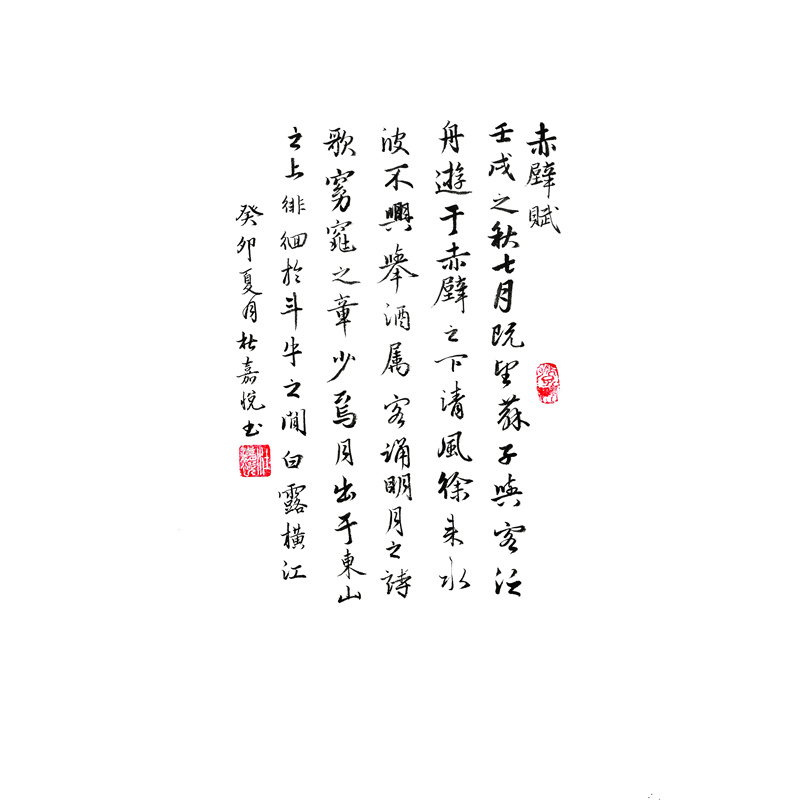 赤壁賦
壬戌之秋七月既望蘇子與客泛
舟遊于赤壁之下清風徐来水
波不興舉酒属客誦明月之詩
歌窈窕之章少焉月出于東山
之上徘徊於斗牛之間白露橫江
癸卯夏月杜嘉悦书